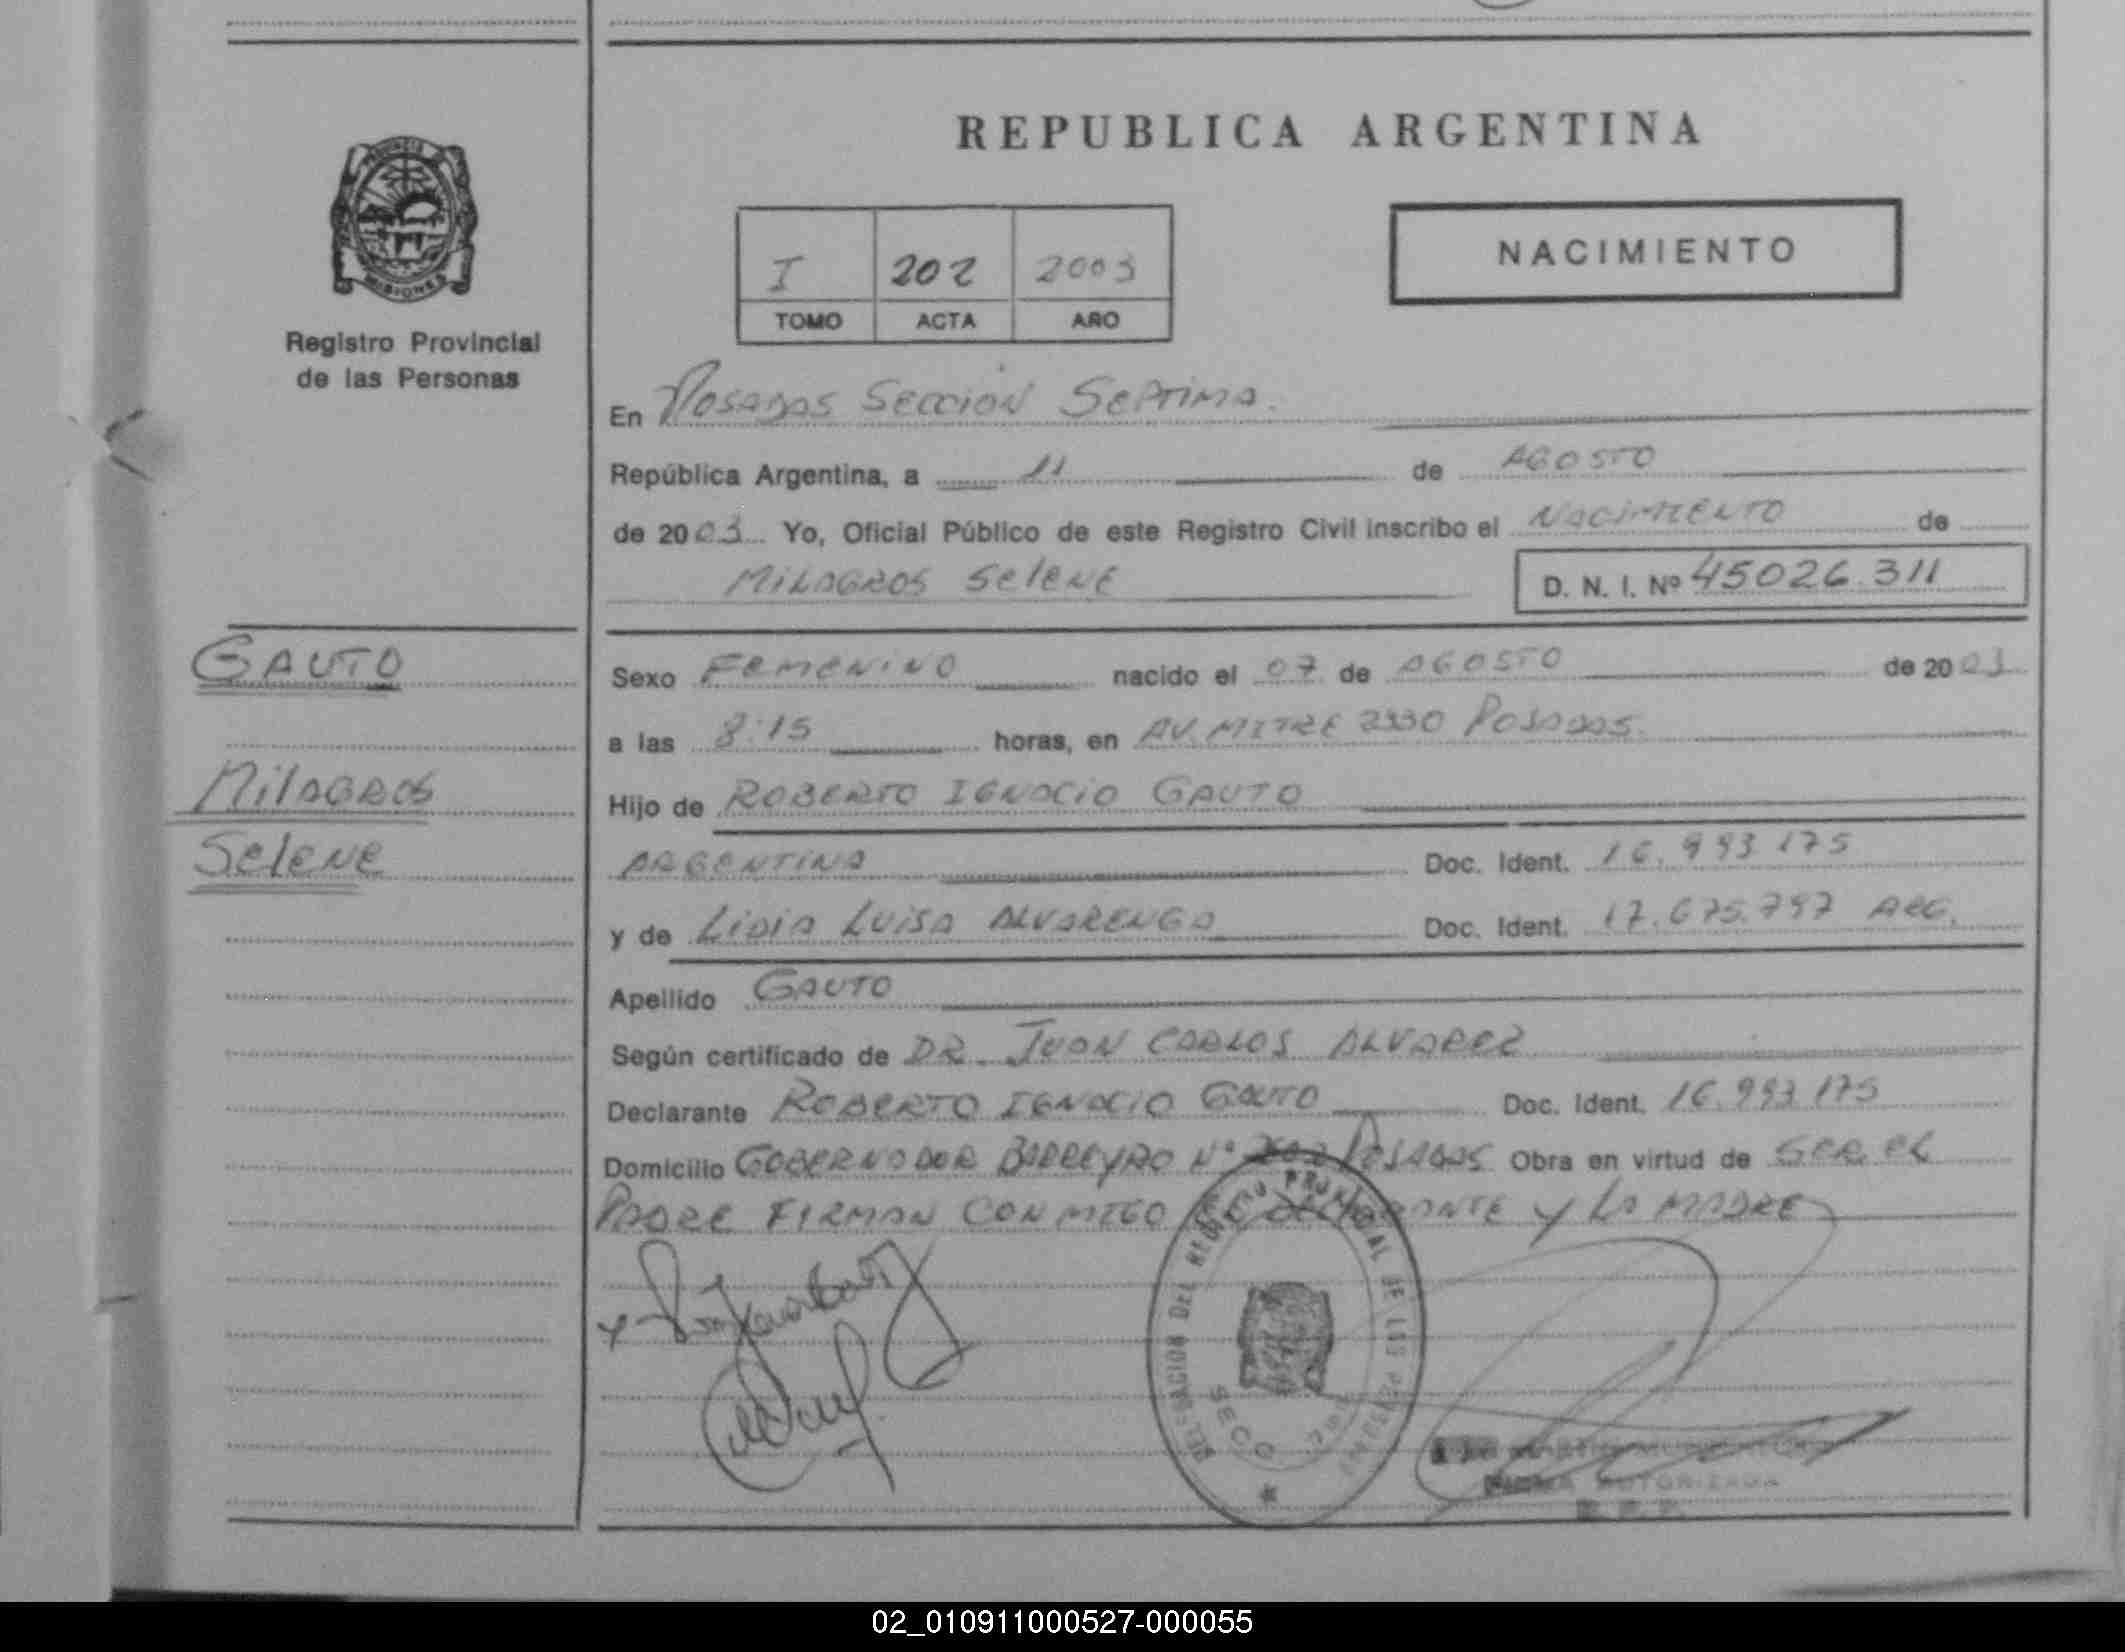 REPUBLICA ARGENTINA
NACIMIENTO
I 202 2003
TOMO ACTA AÑO
PROVINCIA DE
MISIONES
Registro Provincial
de las Personas
En POSADAS SECCION SEPTIMA.
República Argentina, a 11 de AGOSTO
de 2003 Yo, Oficial Público de este Registro Civil inscribo el NACIMIENTO de
MILAGROS SELENE D. N. I. Nº 45026.311
GAUTO
MILAGROS
SELENE
Sexo FEMENINO nacido el 07 de AGOSTO de 2003
a las 8:15 horas, en AV. MITRE POSADAS.
Hijo de ROBERTO IGNACIO GAUTO
ARGENTINA Doc. Ident. 16.993.175
y de LIDIA LUISA ALVARENGA Doc. Ident. 17.675.797 ARG.
Apellido GAUTO
Según certificado de DR. JUAN CARLOS ALVAREZ
Declarante ROBERTO IGNACIO GAUTO Doc. Ident. 16.993.175
Domicilio GOBERNADOR BARREYRO Nº POSADAS Obra en virtud de SER EL
PADRE FIRMAN CONMIGO Y LA MADRE
DELEGACION DEL REGISTRO PROVINCIAL DE LAS PERSONAS
SECC
FIRMA AUTORIZADA
02_010911000527-000055